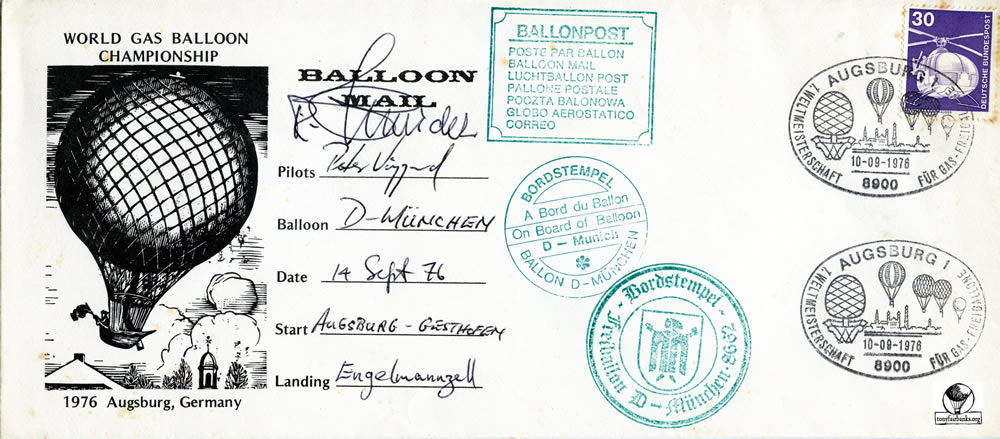 WORLD GAS BALLOON
CHAMPIONSHIP
1976 Augsburg, Germany
BALLOON
MAIL
Pilots
Balloon D-MÜNCHEN
Date 14 Sept 76
Start AUGSBURG - GERSTHOFEN
Landing Engelmannzell
BALLONPOST
POSTE PAR BALLON
BALLOON MAIL
LUCHTBALLON POST
PALLONE POSTALE
POCZTA BALONOWA
GLOBO AEROSTATICO
CORREO
BORDSTEMPEL
A Bord du Ballon
On Board of Balloon
D - Munich
BALLON D-MÜNCHEN
Bordstempel
Freiballon D-München
30
DEUTSCHE BUNDESPOST
AUGSBURG 1
1. WELTMEISTERSCHAFT FÜR GAS-FREIBALLONE
10-09-1976
8900
AUGSBURG 1
1. WELTMEISTERSCHAFT FÜR GAS-FREIBALLONE
10-09-1976
8900
tonyfairbanks.org